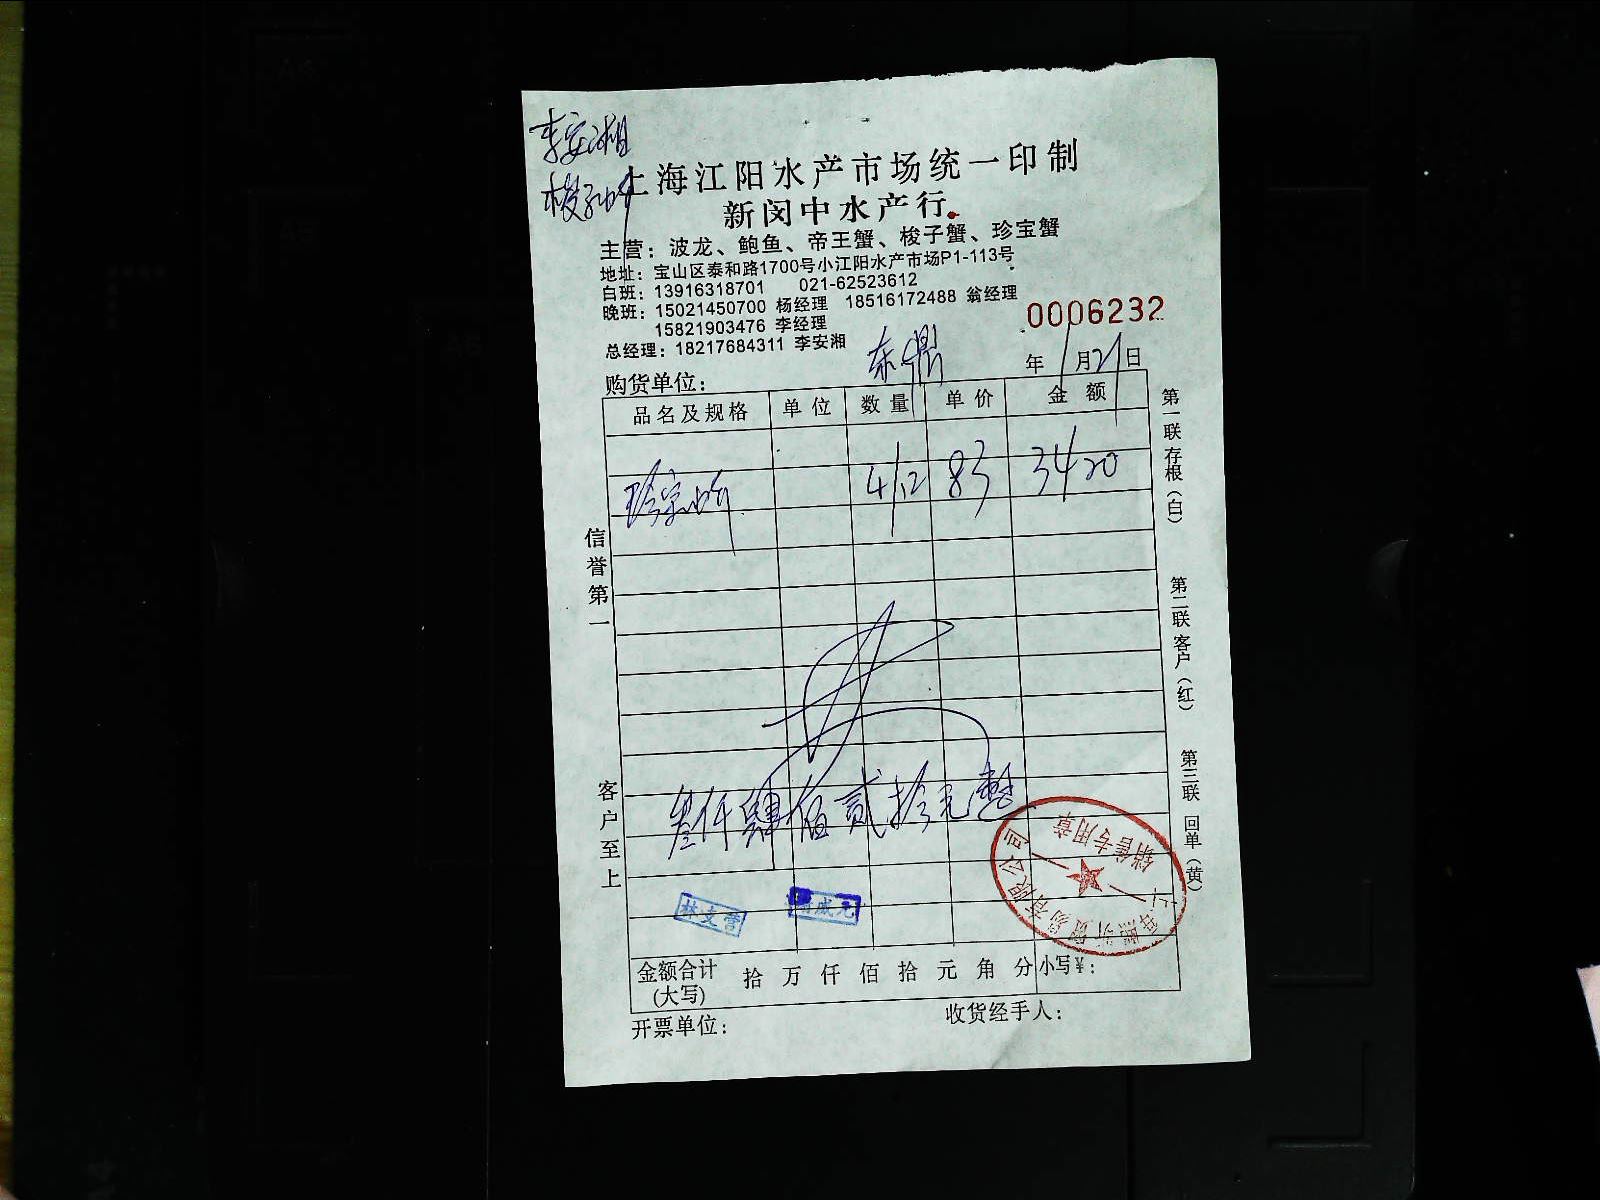 李安湘
梭子蟹
上海江阳水产市场统一印制
新闵中水产行
主营：波龙、鲍鱼、帝王蟹、梭子蟹、珍宝蟹
地址：宝山区泰和路1700号小江阳水产市场P1-113号
白班：13916318701 021-62523612
晚班：15021450700 杨经理 18516172488 翁经理
15821903476 李经理
总经理：18217684311 李安湘
0006232
购货单位： 东鼎 年 1月21日
品名及规格 单位 数量 单价 金额
珍宝蟹 41.2 83 3420
叁仟肆佰贰拾元整
林支营
金额合计(大写) 拾 万 仟 佰 拾 元 角 分 小写￥：
开票单位： 收货经手人：
信誉第一
客户至上
第一联 存根（白）
第二联 客户（红）
第三联 回单（黄）
销售专用章